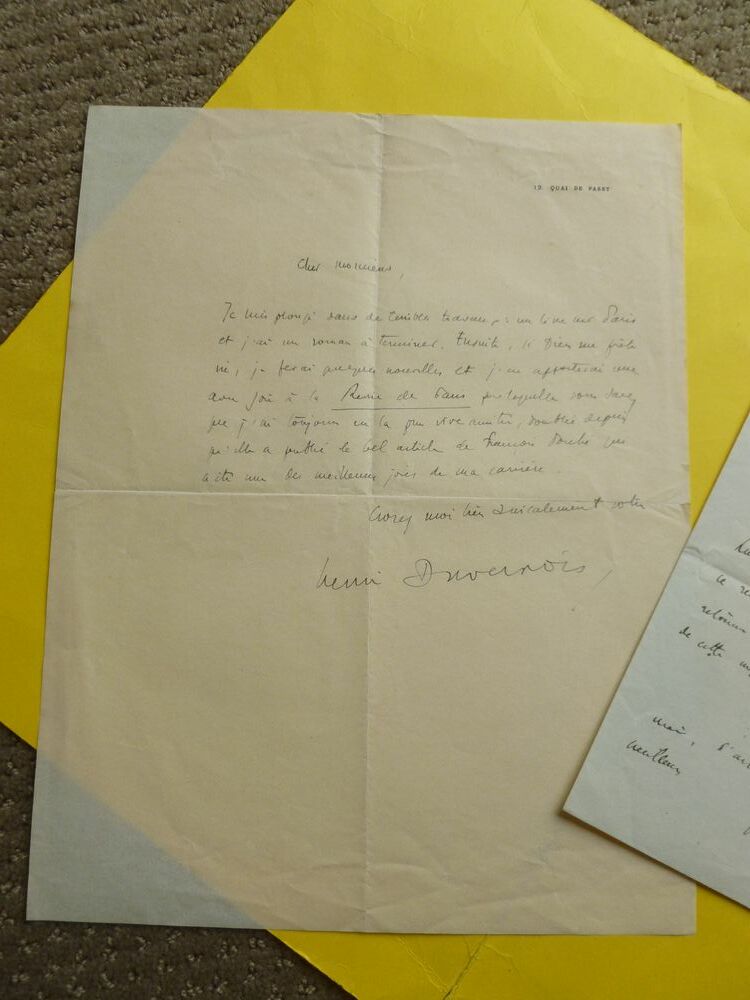 19. QUAI DE PASSY
Cher monsieur,
Je suis plongé dans de terribles travaux : un livre sur Paris
et j'ai un roman à terminer. Ensuite, si Dieu me prête
vie, je ferai quelques nouvelles et j'en apporterai une
avec joie à la Revue de Paris pour laquelle vous savez
que j'ai toujours eu la plus vive amitié, doublée depuis
qu'elle a publié le bel article de François Porché qui
a été une des meilleures joies de ma carrière.
Croyez moi bien amicalement votre
Henri Duvernois,
de cette
moi,
meilleurs